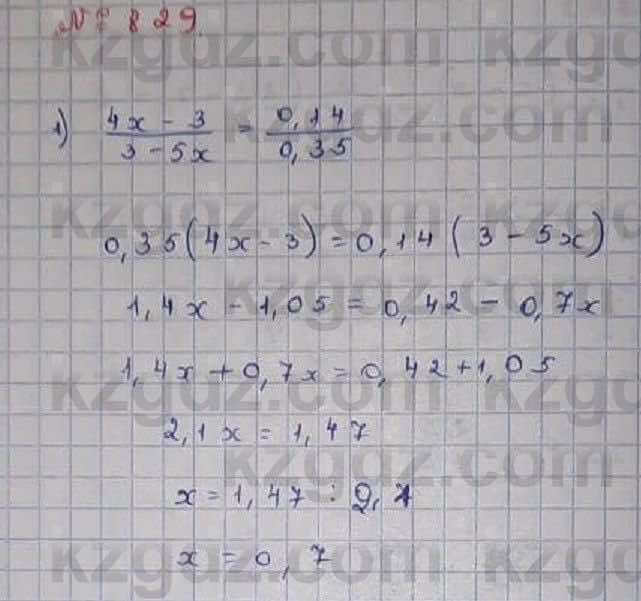 № 829.
1) (4x - 3)/(3 - 5x) = 0,14/0,35
0,35(4x - 3) = 0,14 (3 - 5x)
1,4x - 1,05 = 0,42 - 0,7x
1,4x + 0,7x = 0,42 + 1,05
2,1x = 1,47
x = 1,47 : 2,1
x = 0,7
kzgdz.com